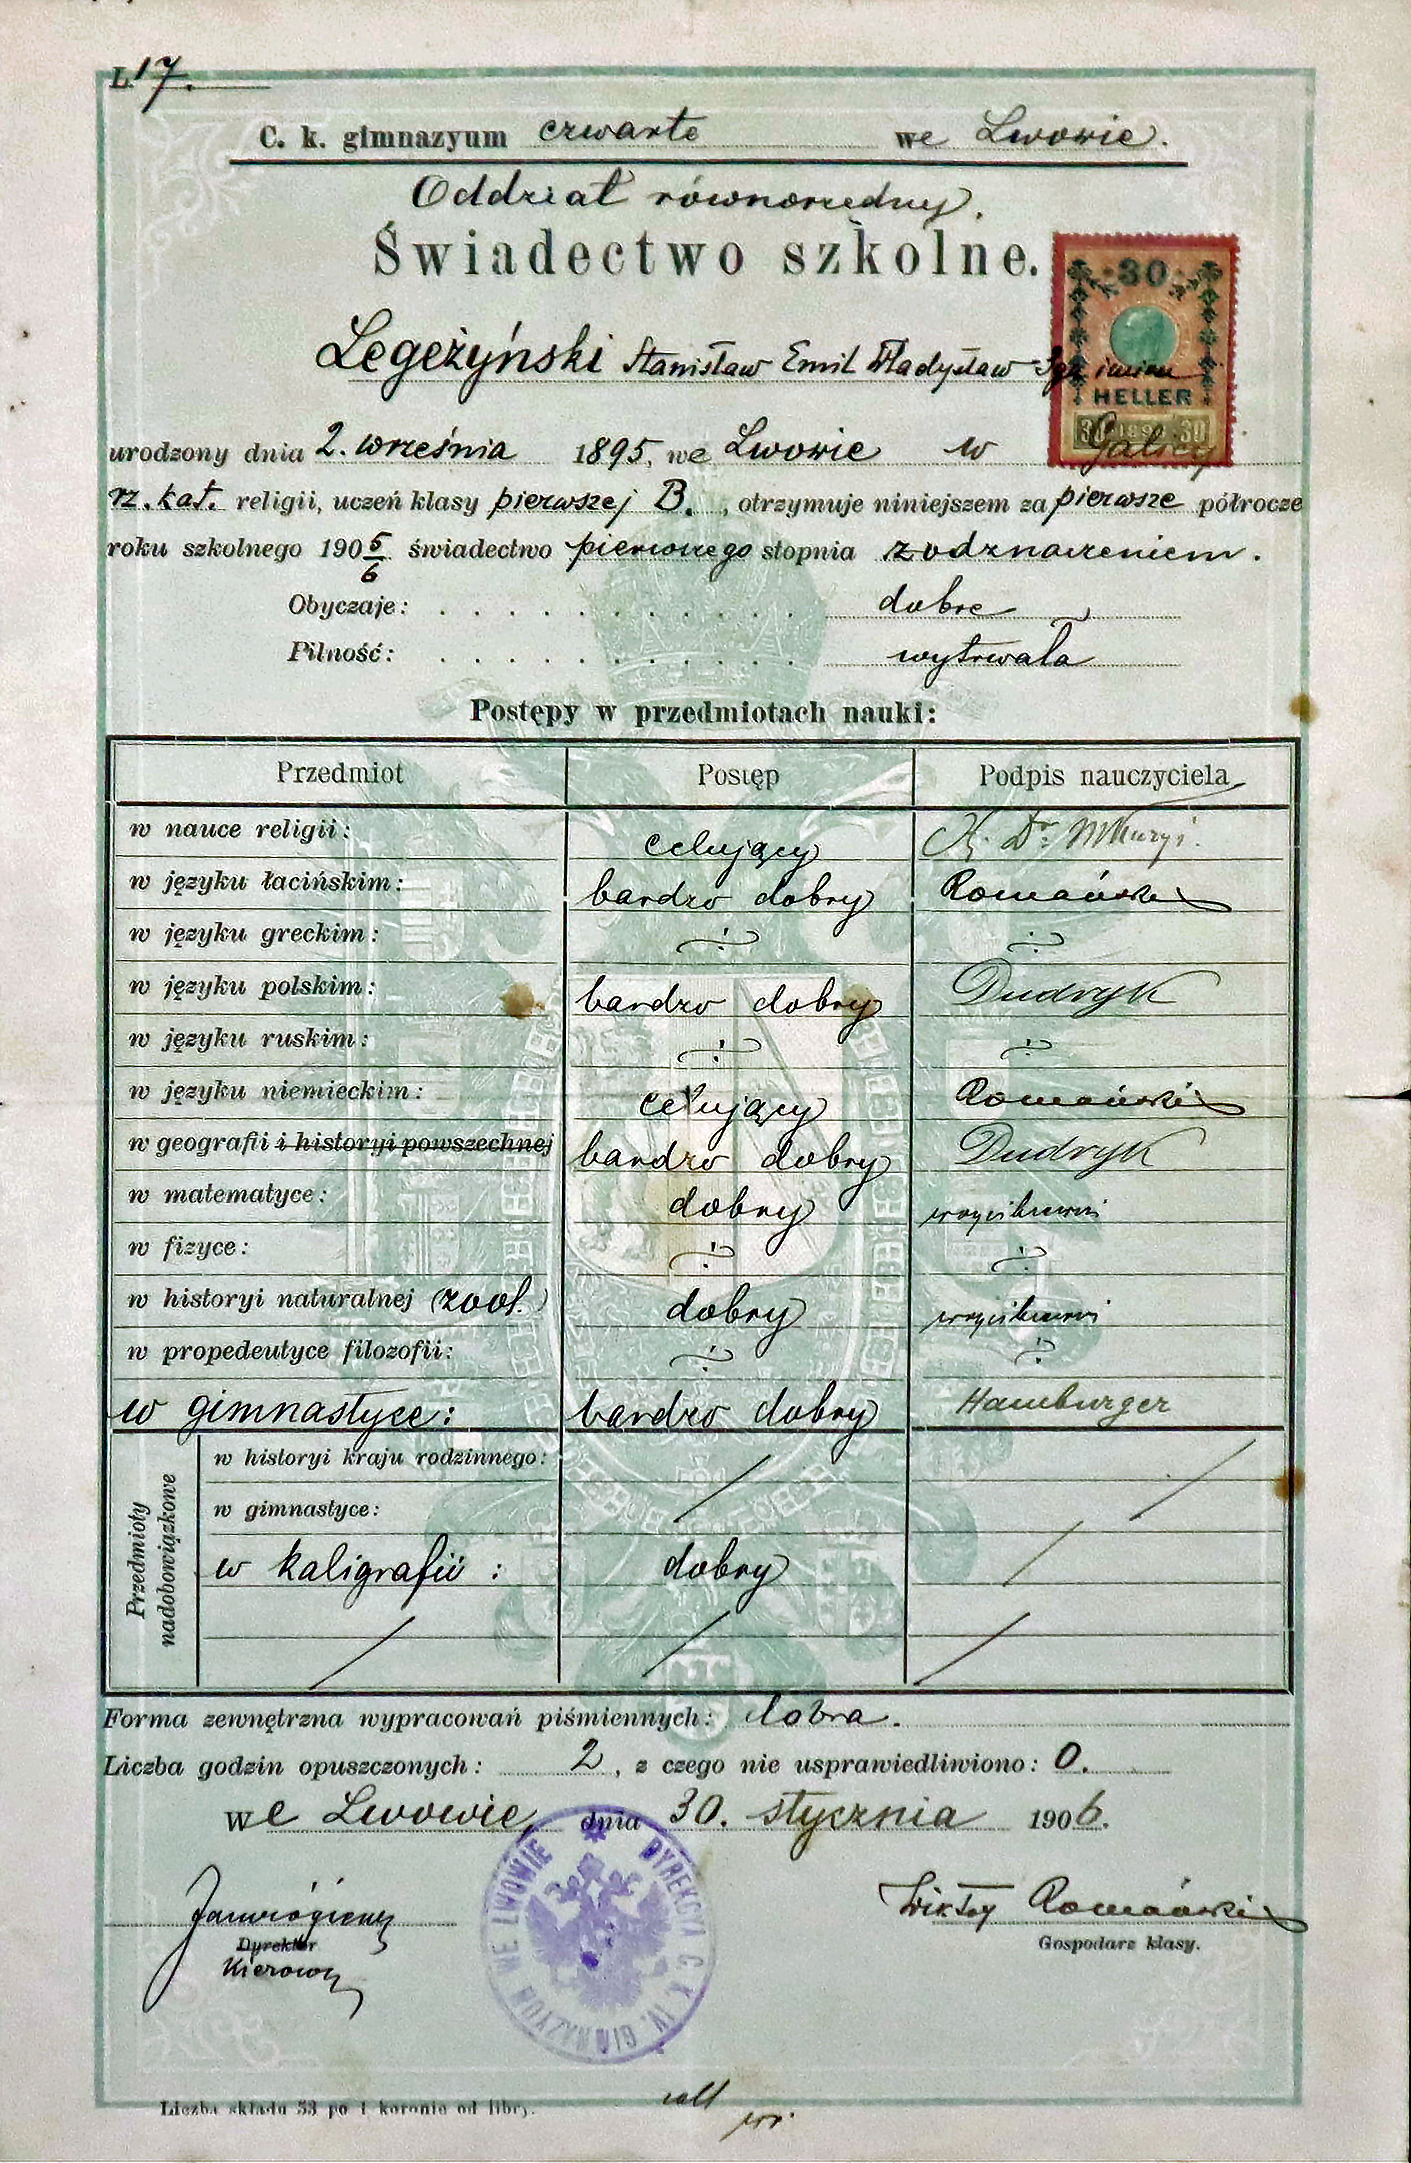 L. 17.
C. k. gimnazyum czwarte we Lwowie.
Oddział równorzędny.
Świadectwo szkolne.
30
HELLER
30 1898 30
Legeżyński Stanisław Emil Władysław 3ga imion
urodzony dnia 2. września 1895, we Lwowie w Galicyi
rz. kat. religii, uczeń klasy pierwszej B. , otrzymuje niniejszem za pierwsze półrocze
roku szkolnego 190 5/6 świadectwo pierwszego stopnia z odznaczeniem.
Obyczaje: dobre
Pilność: wytrwała
Postępy w przedmiotach nauki:
Przedmiot Postęp Podpis nauczyciela
w nauce religii: celujący X. Dr.
w języku łacińskim: bardzo dobry Romański
w języku greckim: ÷ ÷
w języku polskim: bardzo dobry Dudryk
w języku ruskim: ÷ ÷
w języku niemieckim: celujący Romański
w geografii i historyi powszechnej bardzo dobry Dudryk
w matematyce: dobry
w fizyce: ÷ ÷
w historyi naturalnej (zool.) dobry
w propedeutyce filozofii: ÷ ÷
w gimnastyce: bardzo dobry Hamburger
Przedmioty nadobowiązkowe
w historyi kraju rodzinnego:
w gimnastyce:
w kaligrafii : dobry
Forma zewnętrzna wypracowań piśmiennych: dobra.
Liczba godzin opuszczonych: 2 , z czego nie usprawiedliwiono: 0.
We Lwowie, dnia 30. stycznia 1906.
DYREKCYA C. K. IV. GIMNAZYUM WE LWOWIE
Wiktor Romański
Dyrektor
Gospodarz klasy.
Kierown
Liczba składu 53 po 1 koronie od libry.